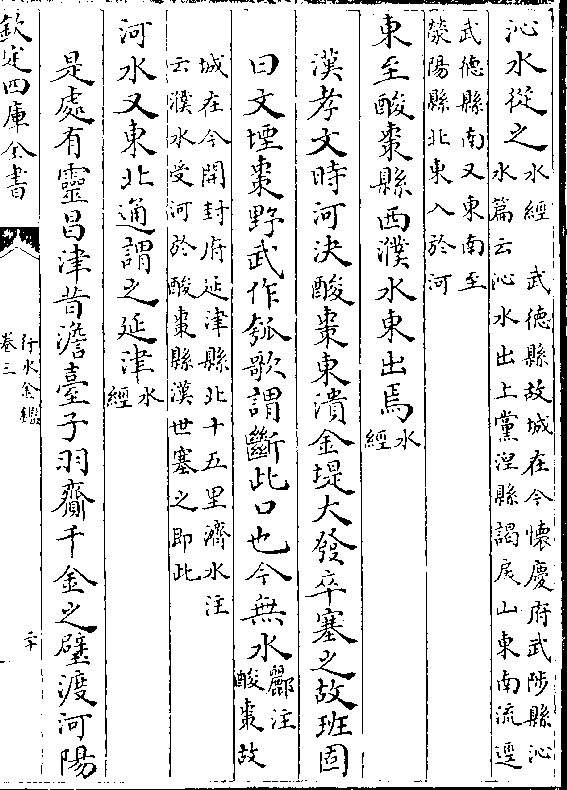 沁水從之水經　武德縣故城在今懷慶府武陟縣沁
水篇云沁水出上黨涅縣謁戾山東南流逕
武德縣南又東南至
滎陽縣北東入於河
東至酸棗縣西濮水東出焉水經
漢孝文時河決酸棗東潰金堤大發卒塞之故班固
曰文堙棗野武作瓠歌謂斷此口也今無水酈注
酸棗故
城在今開封府延津縣北十五里濟水注
云濮水受河於酸棗縣漢世塞之即此
河水又東北通謂之延津水經
是處有靈昌津昔澹臺子羽齎千金之璧渡河陽
欽定四庫全書
行水金鑑
卷三
二十